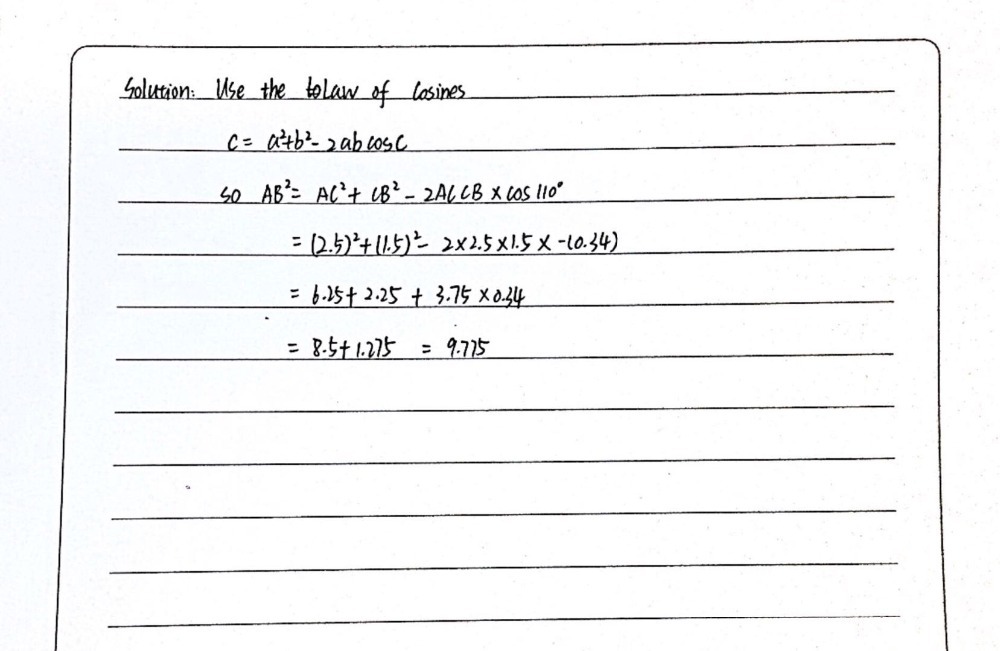 Solution: Use the toLaw of Cosines
C = a²+b² - 2ab cosC
so AB² = AC² + CB² - 2AC CB × cos 110°
= (2.5)² + (1.5)² - 2×2.5×1.5 × -(0.34)
= 6.25 + 2.25 + 3.75 × 0.34
= 8.5 + 1.275 = 9.775